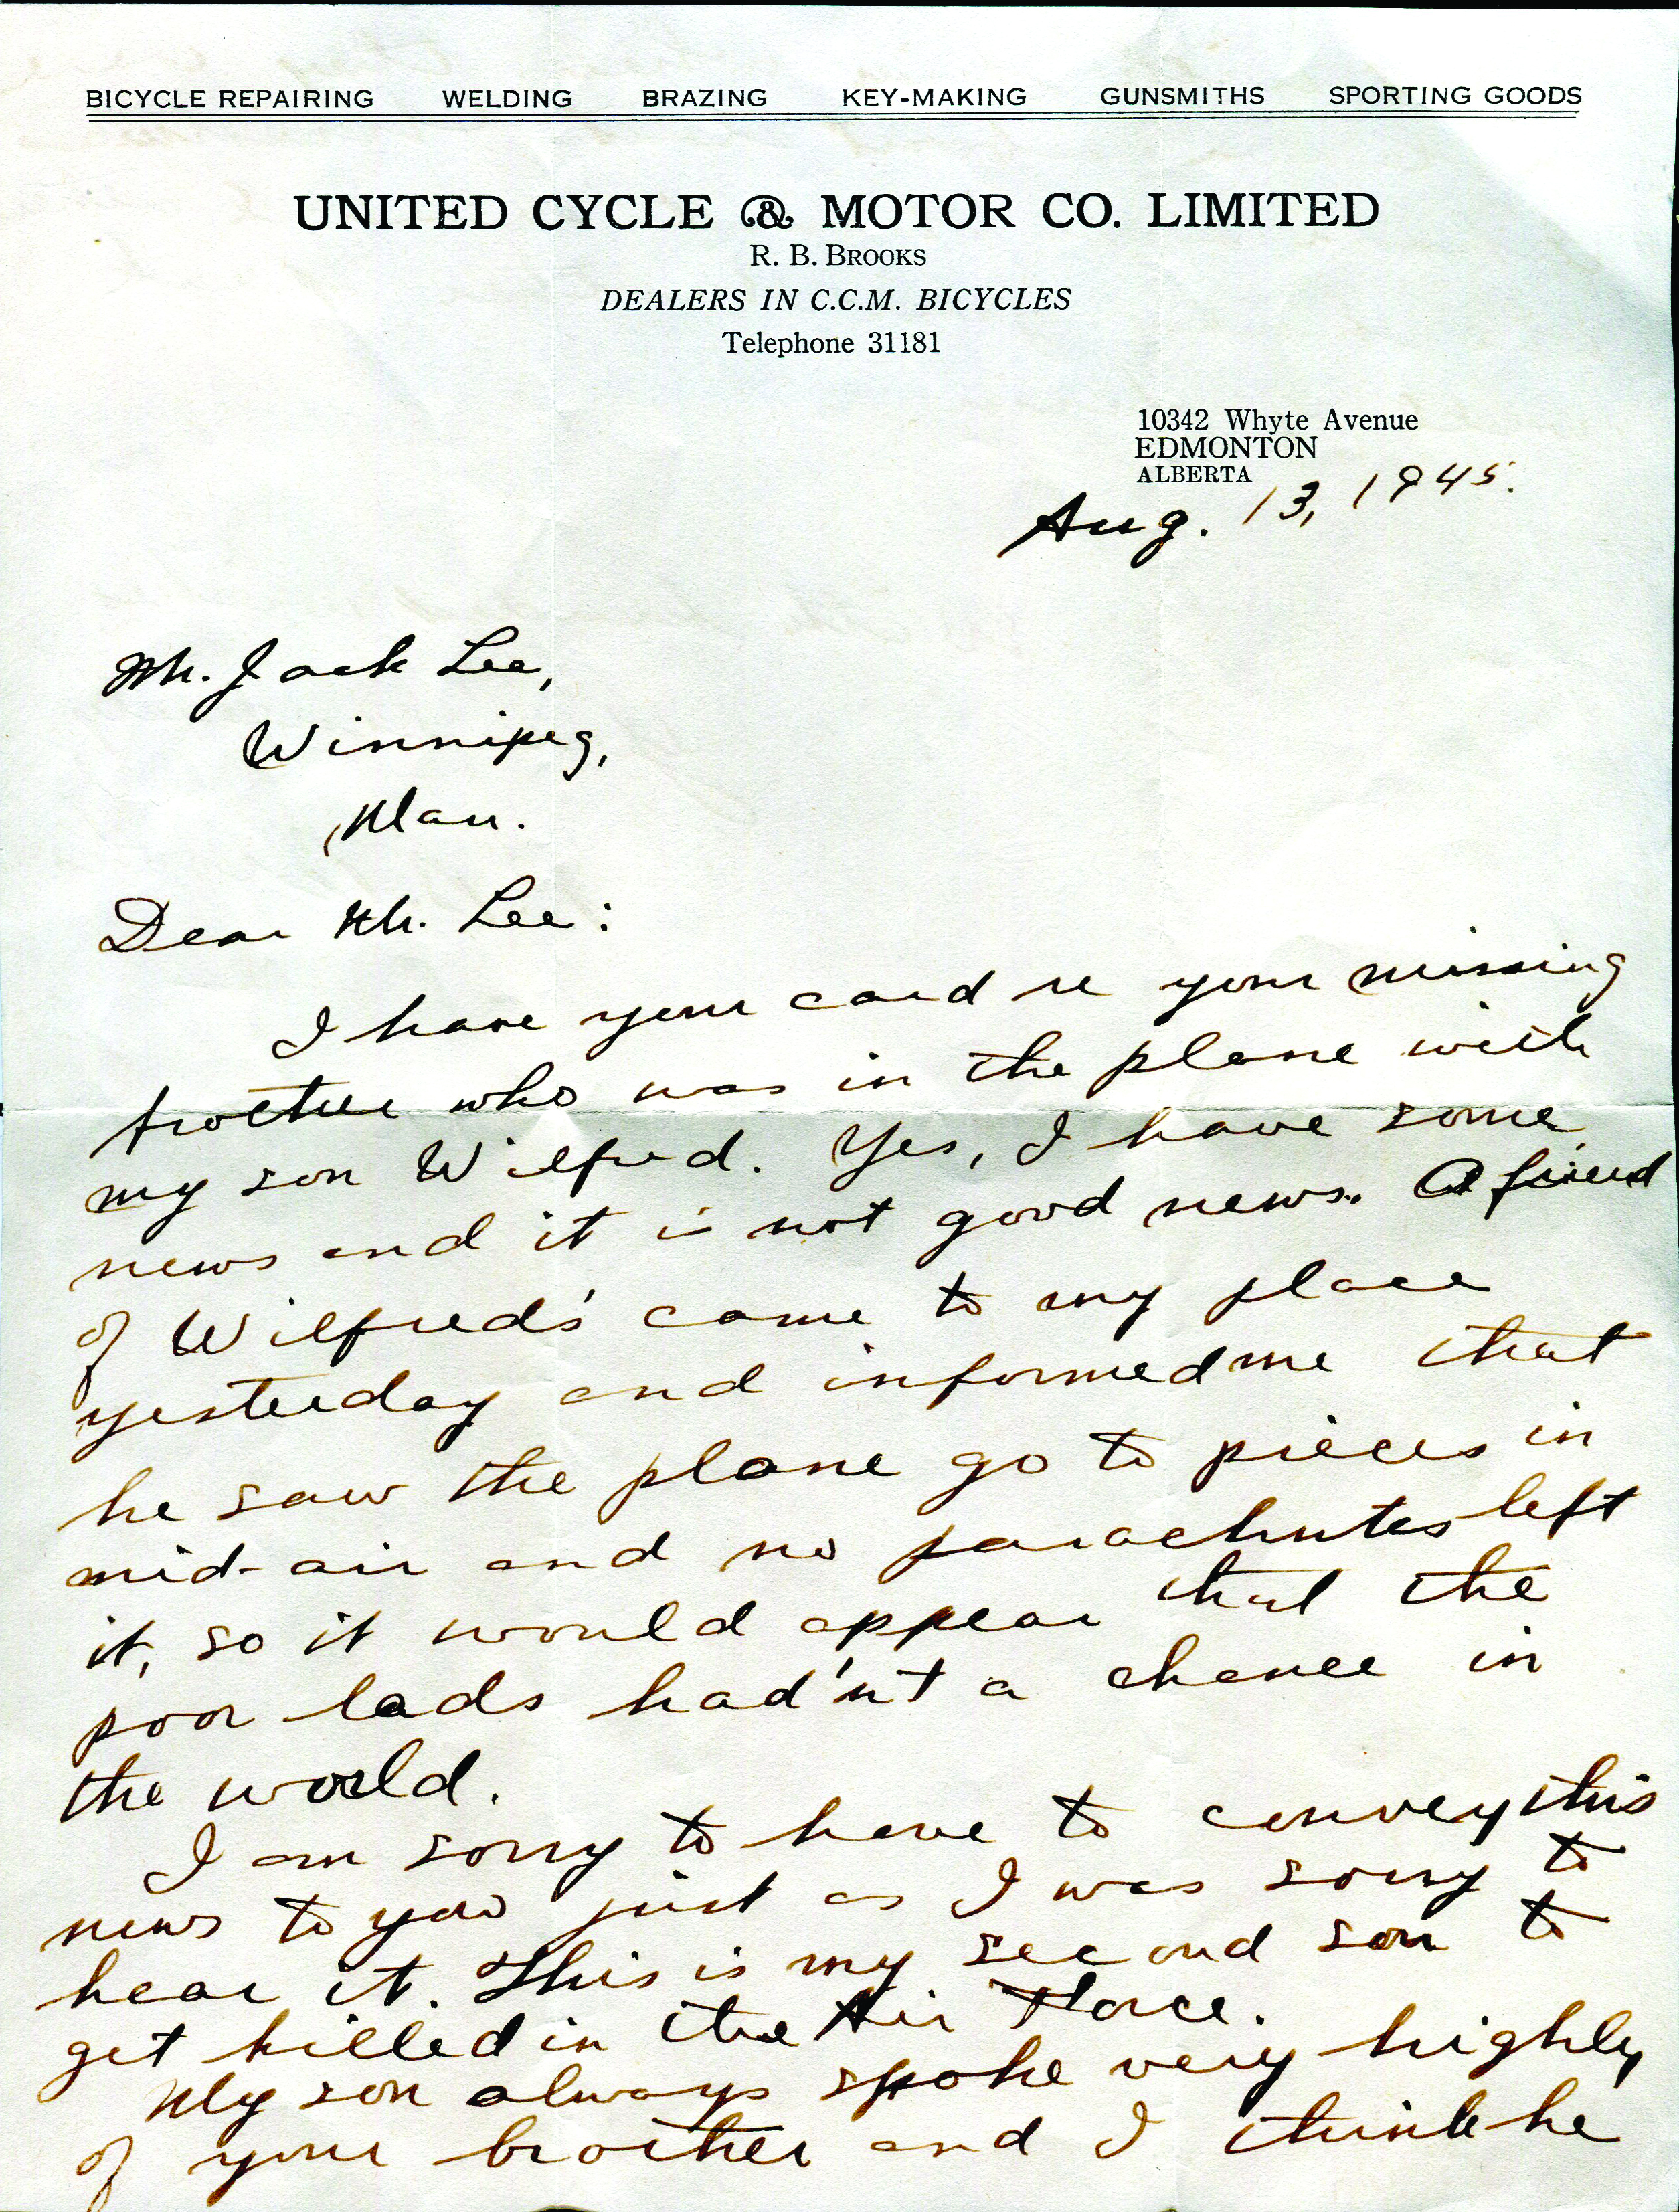 BICYCLE REPAIRING WELDING BRAZING KEY-MAKING GUNSMITHS SPORTING GOODS
UNITED CYCLE & MOTOR CO. LIMITED
R. B. BROOKS
DEALERS IN C.C.M. BICYCLES
Telephone 31181
10342 Whyte Avenue
EDMONTON
ALBERTA
Aug. 13, 1945.
Mr. Jack Lee,
Winnipeg,
Man.
Dear Mr. Lee:
I have your card re your missing
brother who was in the plane with
my son Wilfred. Yes, I have some
news and it is not good news. A friend
of Wilfred's came to my place
yesterday and informed me that
he saw the plane go to pieces in
mid-air and no parachutes left
it, so it would appear that the
poor lads had'nt a chance in
the world.
I am sorry to have to convey this
news to you just as I was sorry to
hear it. This is my second son to
get killed in the Air Force.
My son always spoke very highly
of your brother and I think he